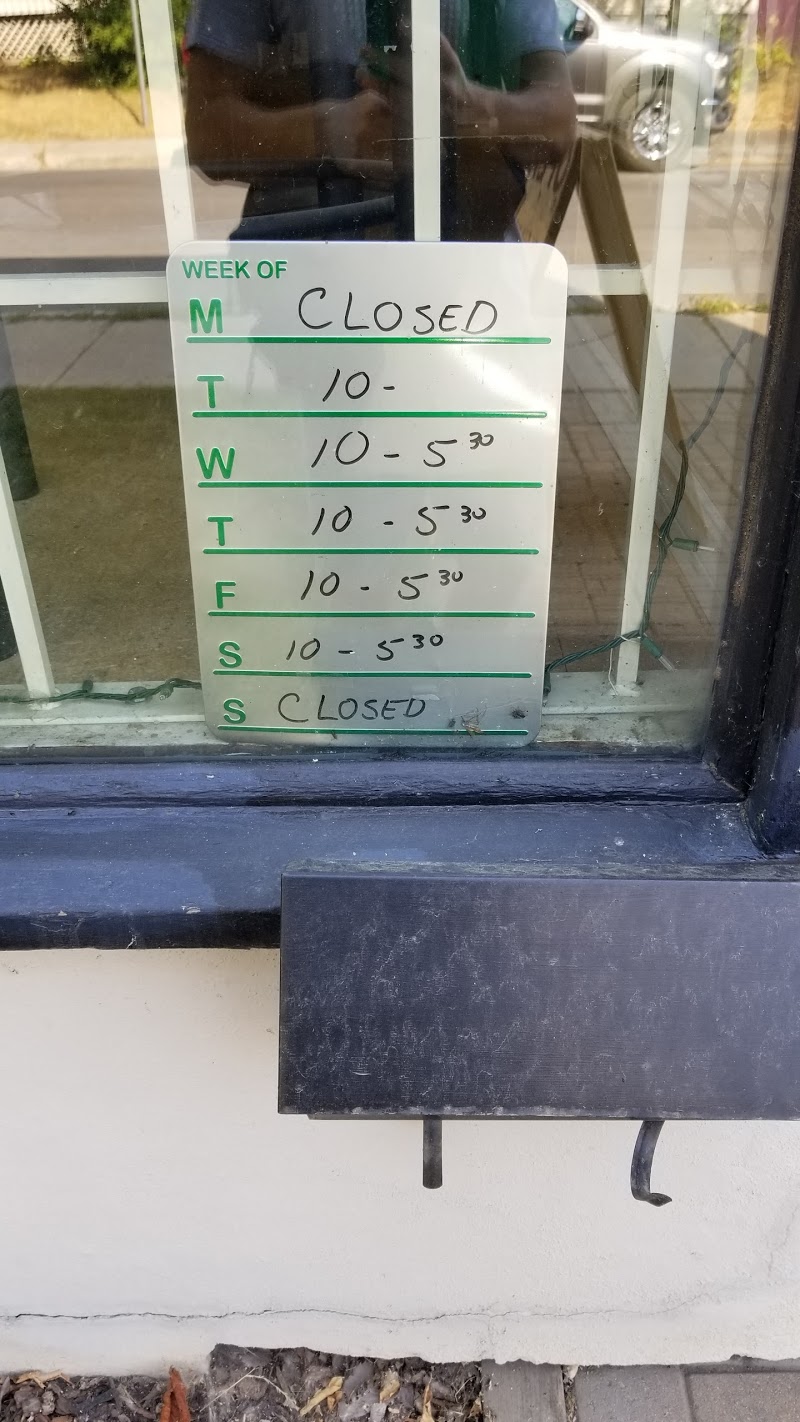 WEEK OF
M CLOSED
T 10 -
W 10 - 5 30
T 10 - 5 30
F 10 - 5 30
S 10 - 5 30
S CLOSED